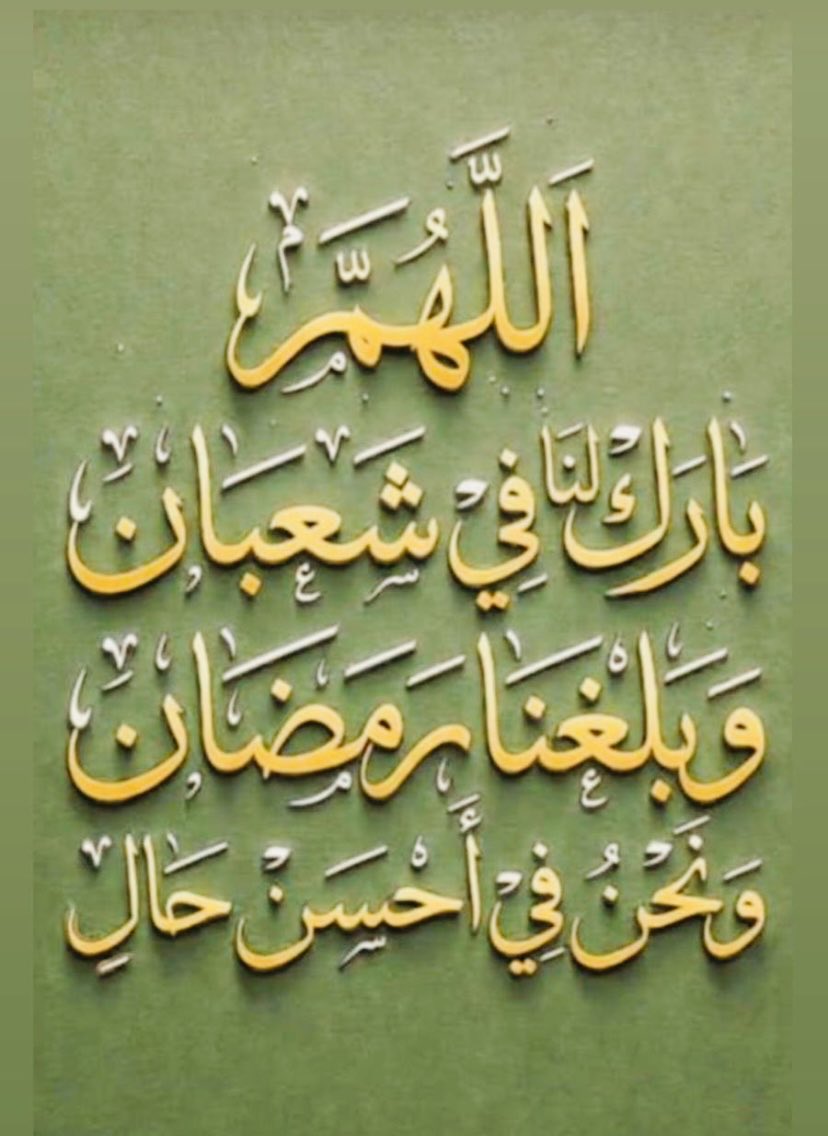 اَللَّهُمَّ
بَارَك لنَا فِي شَعبَان
وَبَلغنَا رَمَضَان
وَنَحْنُ فِي أَحْسَن حَالِ